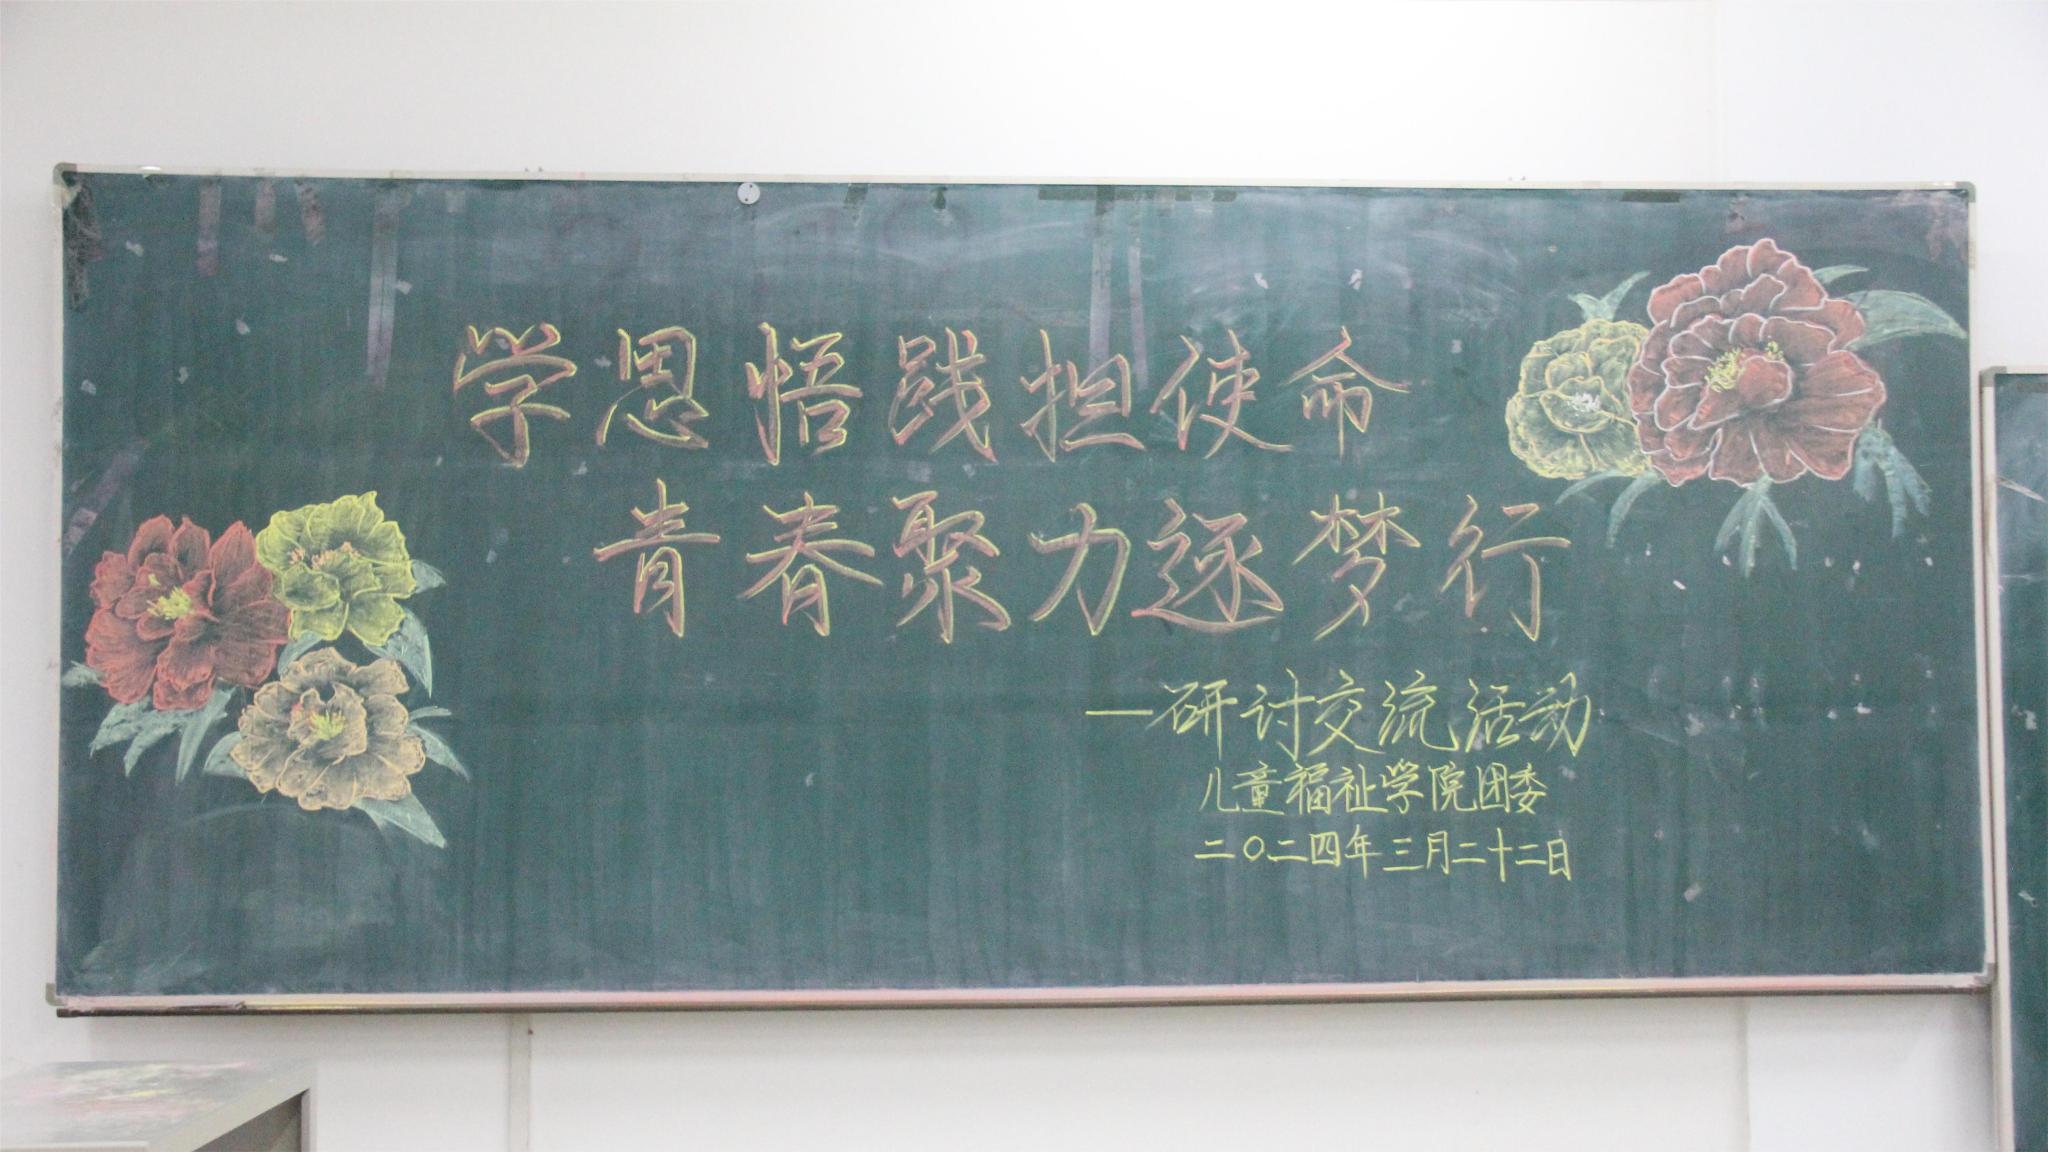 学思悟践担使命
青春聚力逐梦行
—研讨交流活动
儿童福祉学院团委
二〇二四年三月二十二日